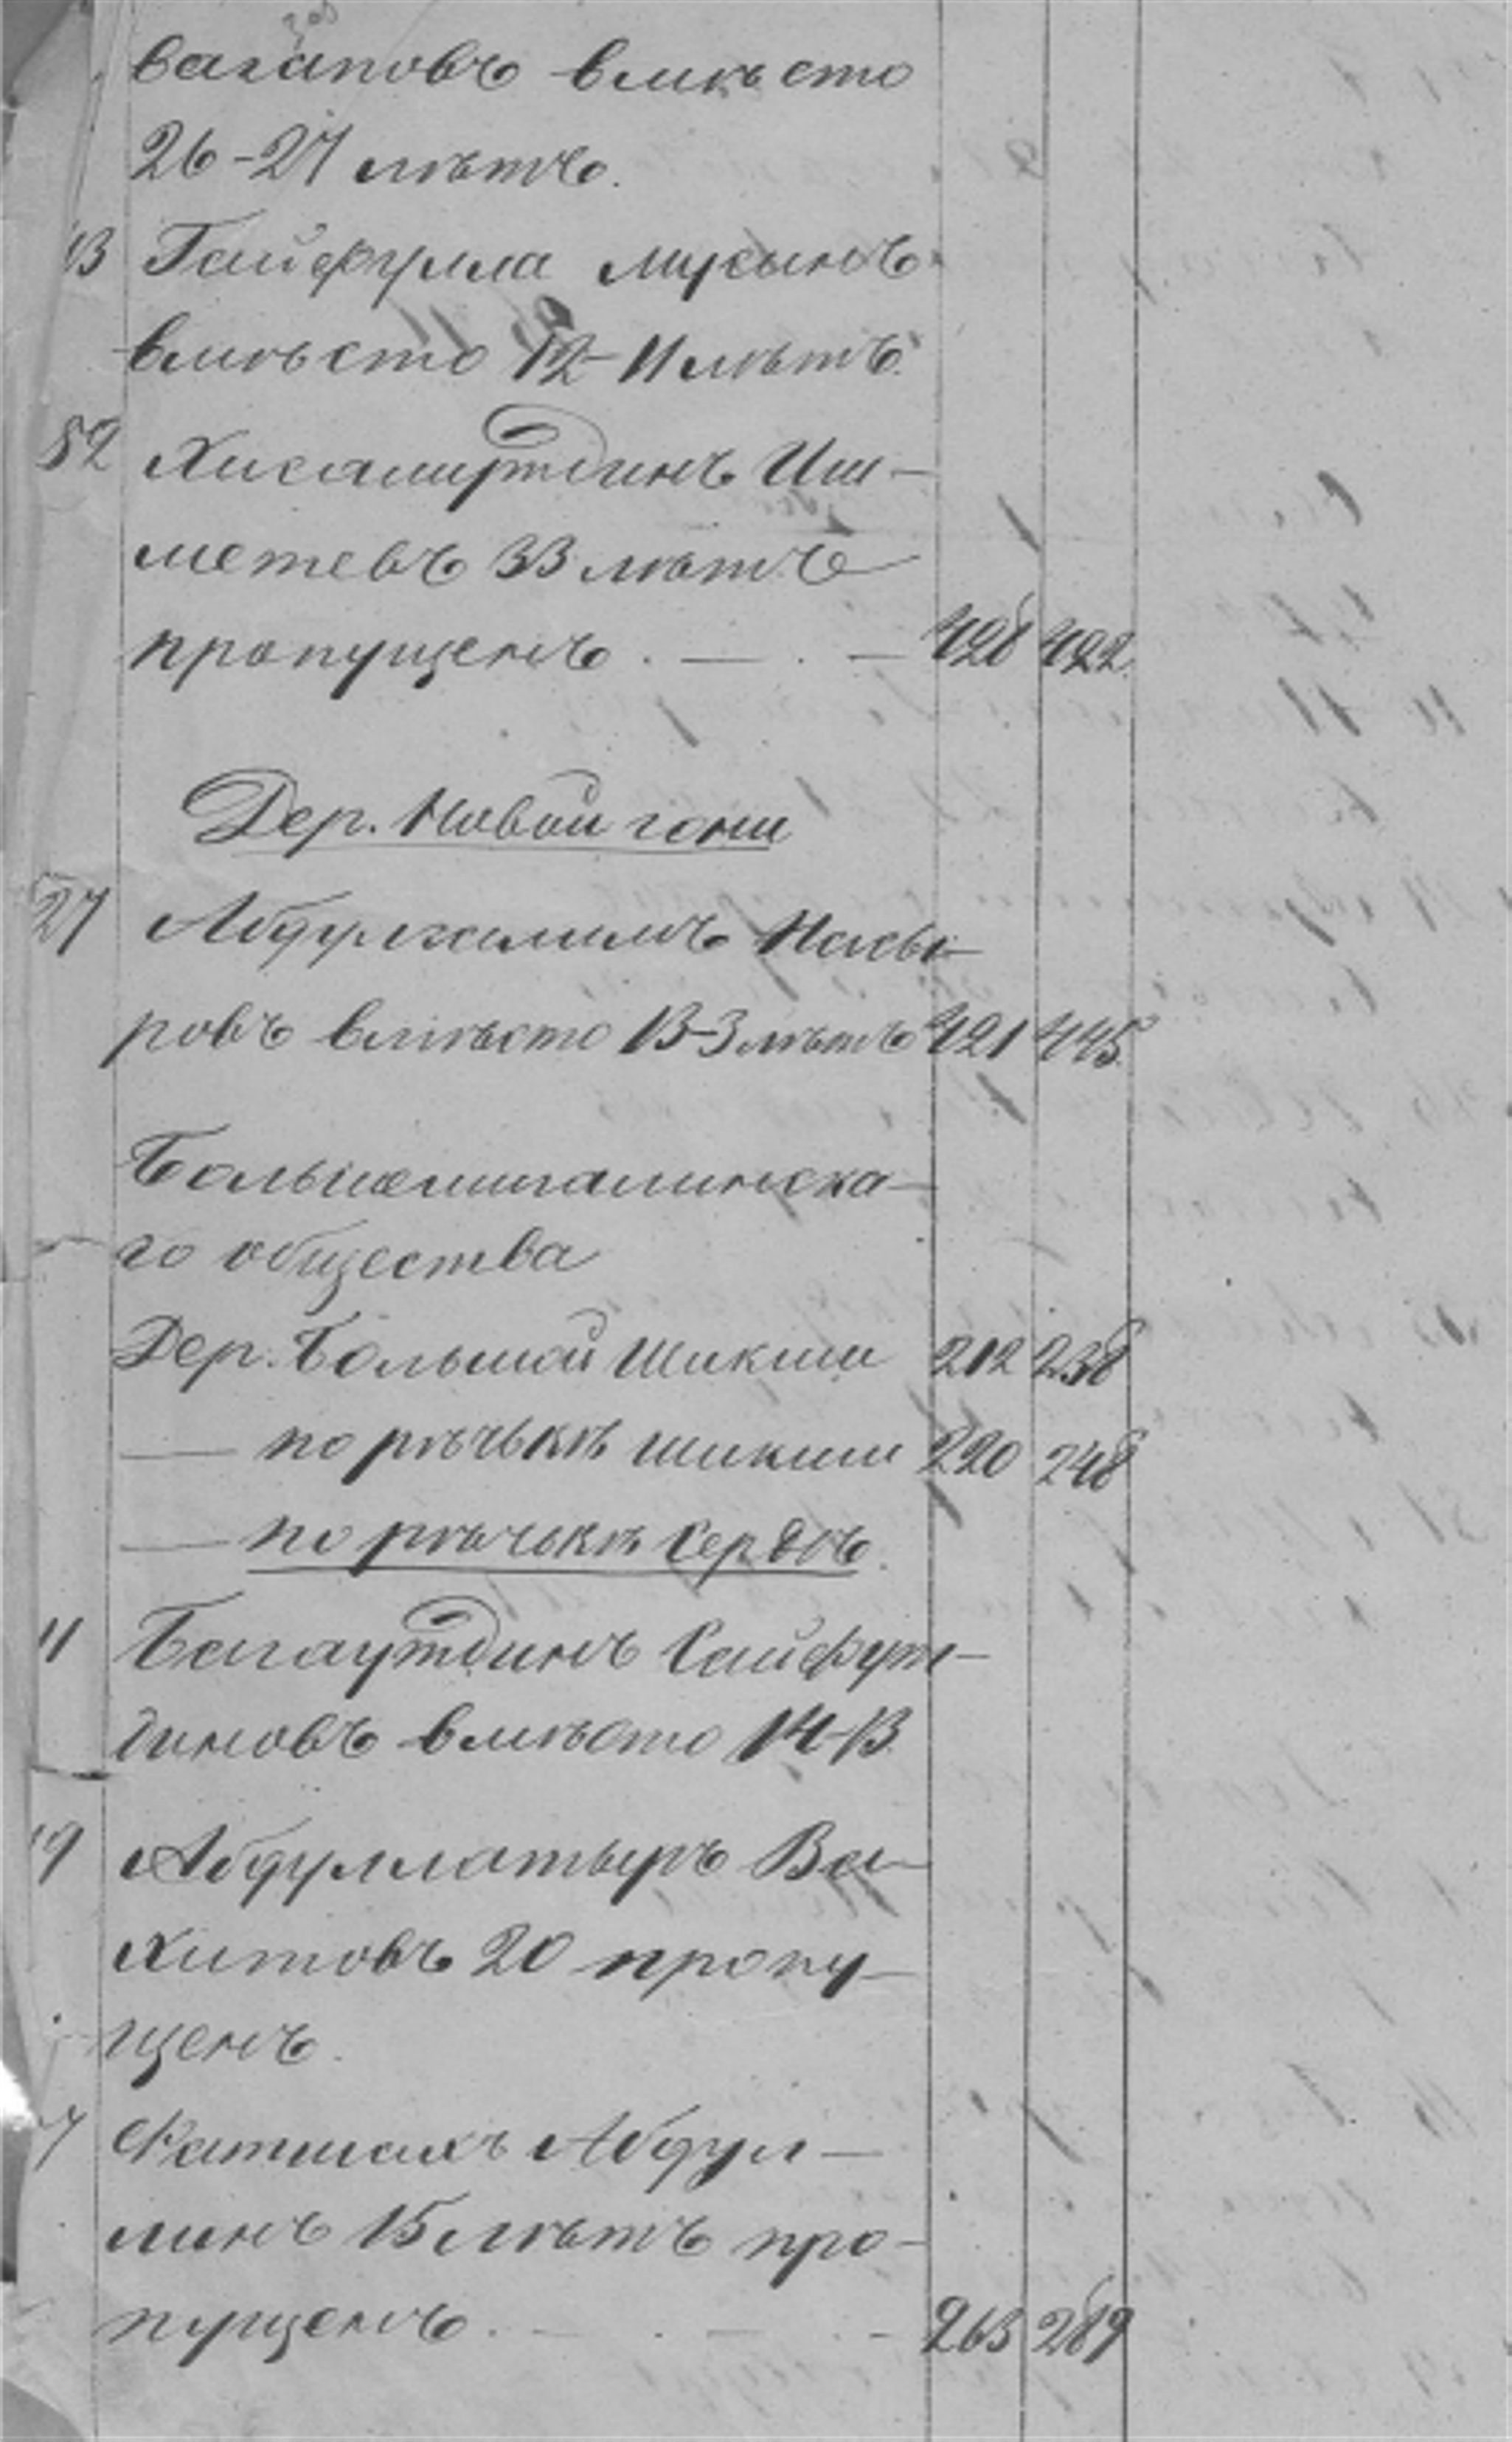 вагаповъ вмѣсто
26-27 лѣтъ.
13 Гайфулла Мусынъ
вмѣсто 12-11 лѣтъ.
82 Хисамутдинъ Иш-
метевъ 33 лѣтъ
пропущенъ . — . — 428 422
Дер. Новой гони
27 Абдулжалилъ Насы-
ровъ вмѣсто 13-3 лѣтъ 421 445
Большешигалинска-
го общества
Дер. Большой Шикши 212 238
— по рѣчькѣ шикши 220 248
— по рѣчькѣ Сердѣ.
11 Багаутдинъ Сайфут-
диновъ вмѣсто 14-13.
19 Абдуллатыръ Ва-
хитовъ 20 пропу-
щенъ.
Фатшахъ Абдул-
линъ 15 лѣтъ про-
пущенъ. — . — . — 263 289